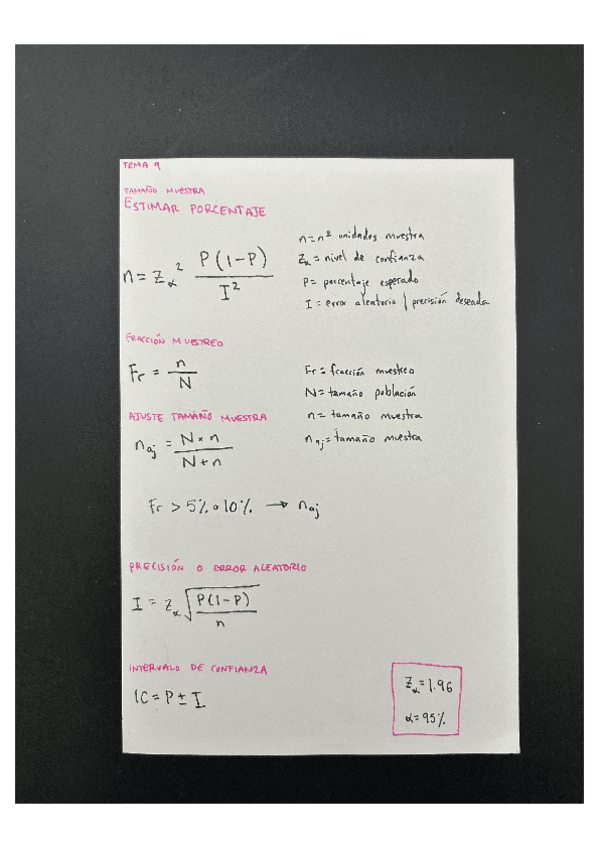 TEMA 9
TAMAÑO MUESTRA
ESTIMAR PORCENTAJE
n = Zα² P(1-P) / I²
n = nº unidades muestra
Zα = nivel de confianza
P = porcentaje esperado
I = error aleatorio / precisión deseada
FRACCIÓN MUESTREO
Fr = n / N
Fr = fracción muestreo
N = tamaño población
n = tamaño muestra
naj = tamaño muestra
AJUSTE TAMAÑO MUESTRA
naj = N × n / N + n
Fr > 5% o 10% → naj
PRECISIÓN O ERROR ALEATORIO
I = Zα √ P(1-P) / n
INTERVALO DE CONFIANZA
IC = P ± I
Zα = 1.96
α = 95%